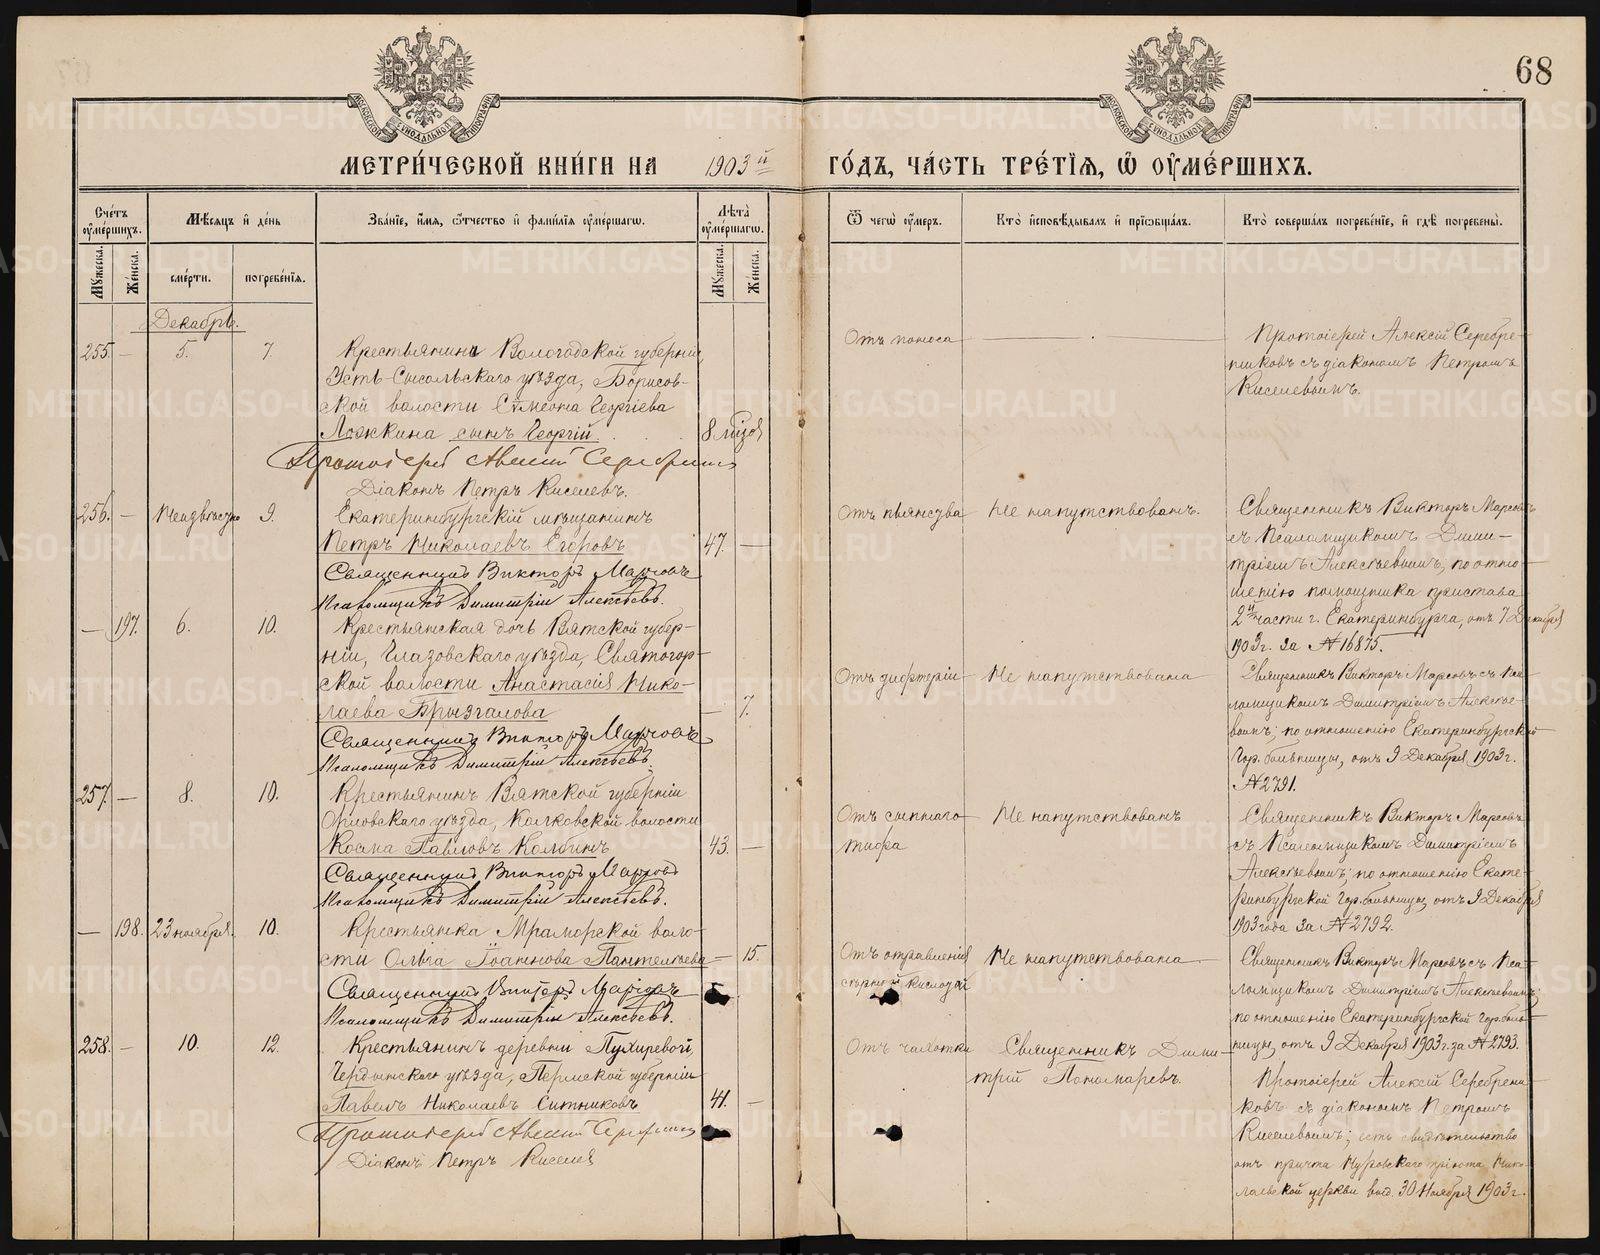 68
МОСКОВСКОЙ СѴНОДАЛЬНОЙ ТИПОГРАФІИ
МОСКОВСКОЙ СѴНОДАЛЬНОЙ ТИПОГРАФІИ
МЕТРИ́ЧЕСКОЙ КНИ́ГИ НА 1903й ГО́ДЪ, ЧА́СТЬ ТРЕ́ТІЯ, Ѽ ОУ҆МЕ́РШИХЪ.
Сче́тъ оу҆ме́ршихъ.
Мѣ́сяцъ и҆ де́нь
Зва́ніе, и҆́мя, ѻ҆́тчество и҆ фами́лія оу҆ме́ршагѡ.
Лѣ́та оу҆ме́ршагѡ.
Ѿ чегѡ̀ оу҆́меръ.
Кто̀ и҆сповѣ́дывалъ и҆ прїѡбща́лъ.
Кто̀ соверша́лъ погребе́ніе, и҆ гдѣ̀ погребены̀.
Мꙋ́жеска.
Же́нска.
сме́рти.
погребе́нія.
Мꙋ́жеска.
Же́нска.
Декабрь.
255. — 5. 7.
Крестьянина Вологодской губерніи,
Усть-Сысольскаго уѣзда, Борисов-
ской волости Сѵмеона Георгіева
Ложкина сынъ Георгій. 8 мѣсяц
Протоіерей Алексій Серебрен
Діаконъ Петръ Киселевъ.
Отъ поноса
Протоіерей Алексій Серебре-
никовъ съ діакономъ Петромъ
Киселевымъ.
256. — Неизвѣстно 9.
Екатеринбургскій мѣщанинъ
Петръ Николаевъ Егоровъ 47. —
Священникъ Викторъ Марсовъ
Псаломщикъ Димитрій Алексѣевъ.
Отъ пьянства
Не напутствованъ.
Священникъ Викторъ Марсовъ
съ Псаломщикомъ Дими-
тріемъ Алексѣевымъ, по отно-
шенію помощника пристава
2й части г. Екатеринбурга, отъ 7 Декабря
1903 г. за № 16875.
— 197. 6. 10.
Крестьянская дочь Вятской губер-
ніи, Глазовскаго уѣзда, Святогор-
ской волости Анастасія Нико-
лаева Брызгалова — 7.
Священникъ Викторъ Марсовъ
Псаломщикъ Димитрій Алексѣевъ.
Отъ дифтеріи
Не напутствована
Священникъ Викторъ Марсовъ съ Пса-
ломщикомъ Димитріемъ Алексѣе-
вымъ; по отношенію Екатеринбургской
Гор. больницы, отъ 9 Декабря 1903 г.
№ 2791.
257. — 8. 10.
Крестьянинъ Вятской губерніи
Орловскаго уѣзда, Колковской волости
Косма Павловъ Колбинъ 43. —
Священникъ Викторъ Марсовъ
Псаломщикъ Димитрій Алексѣевъ.
Отъ сыпнаго
тифа
Не напутствованъ
Священникъ Викторъ Марсовъ
съ Псаломщикомъ Димитріемъ
Алексѣевымъ; по отношенію Екате-
ринбургской Гор. больницы, отъ 9 Декабря
1903 года за № 2792.
— 198. 23 ноября. 10.
Крестьянка Мраморской воло-
сти Ольга Іоаннова Пантелѣева — 15.
Священникъ Викторъ Марсовъ
Псаломщикъ Димитрій Алексѣевъ.
Отъ отравленія
сѣрной кислотой
Не напутствована
Священникъ Викторъ Марсовъ съ Пса-
ломщикомъ Димитріемъ Алексѣевымъ,
по отношенію Екатеринбургской Гор. боль-
ницы, отъ 9 Декабря 1903 г. за № 2793.
258. — 10. 12.
Крестьянинъ деревни Пухиревой,
Чердынскаго уѣзда, Пермской губерніи
Павелъ Николаевъ Ситниковъ 41. —
Протоіерей Алексій Серебрен
Діаконъ Петръ Киселев
Отъ чахотки
Священникъ Дими-
трій Пономаревъ.
Протоіерей Алексій Серебрени-
ковъ съ діакономъ Петромъ
Киселевымъ; есть свидѣтельство
отъ причта Нуровскаго пріюта Нико-
лаевской церкви выд. 30 Ноября 1903 г.
METRIKI.GASO-URAL.RU